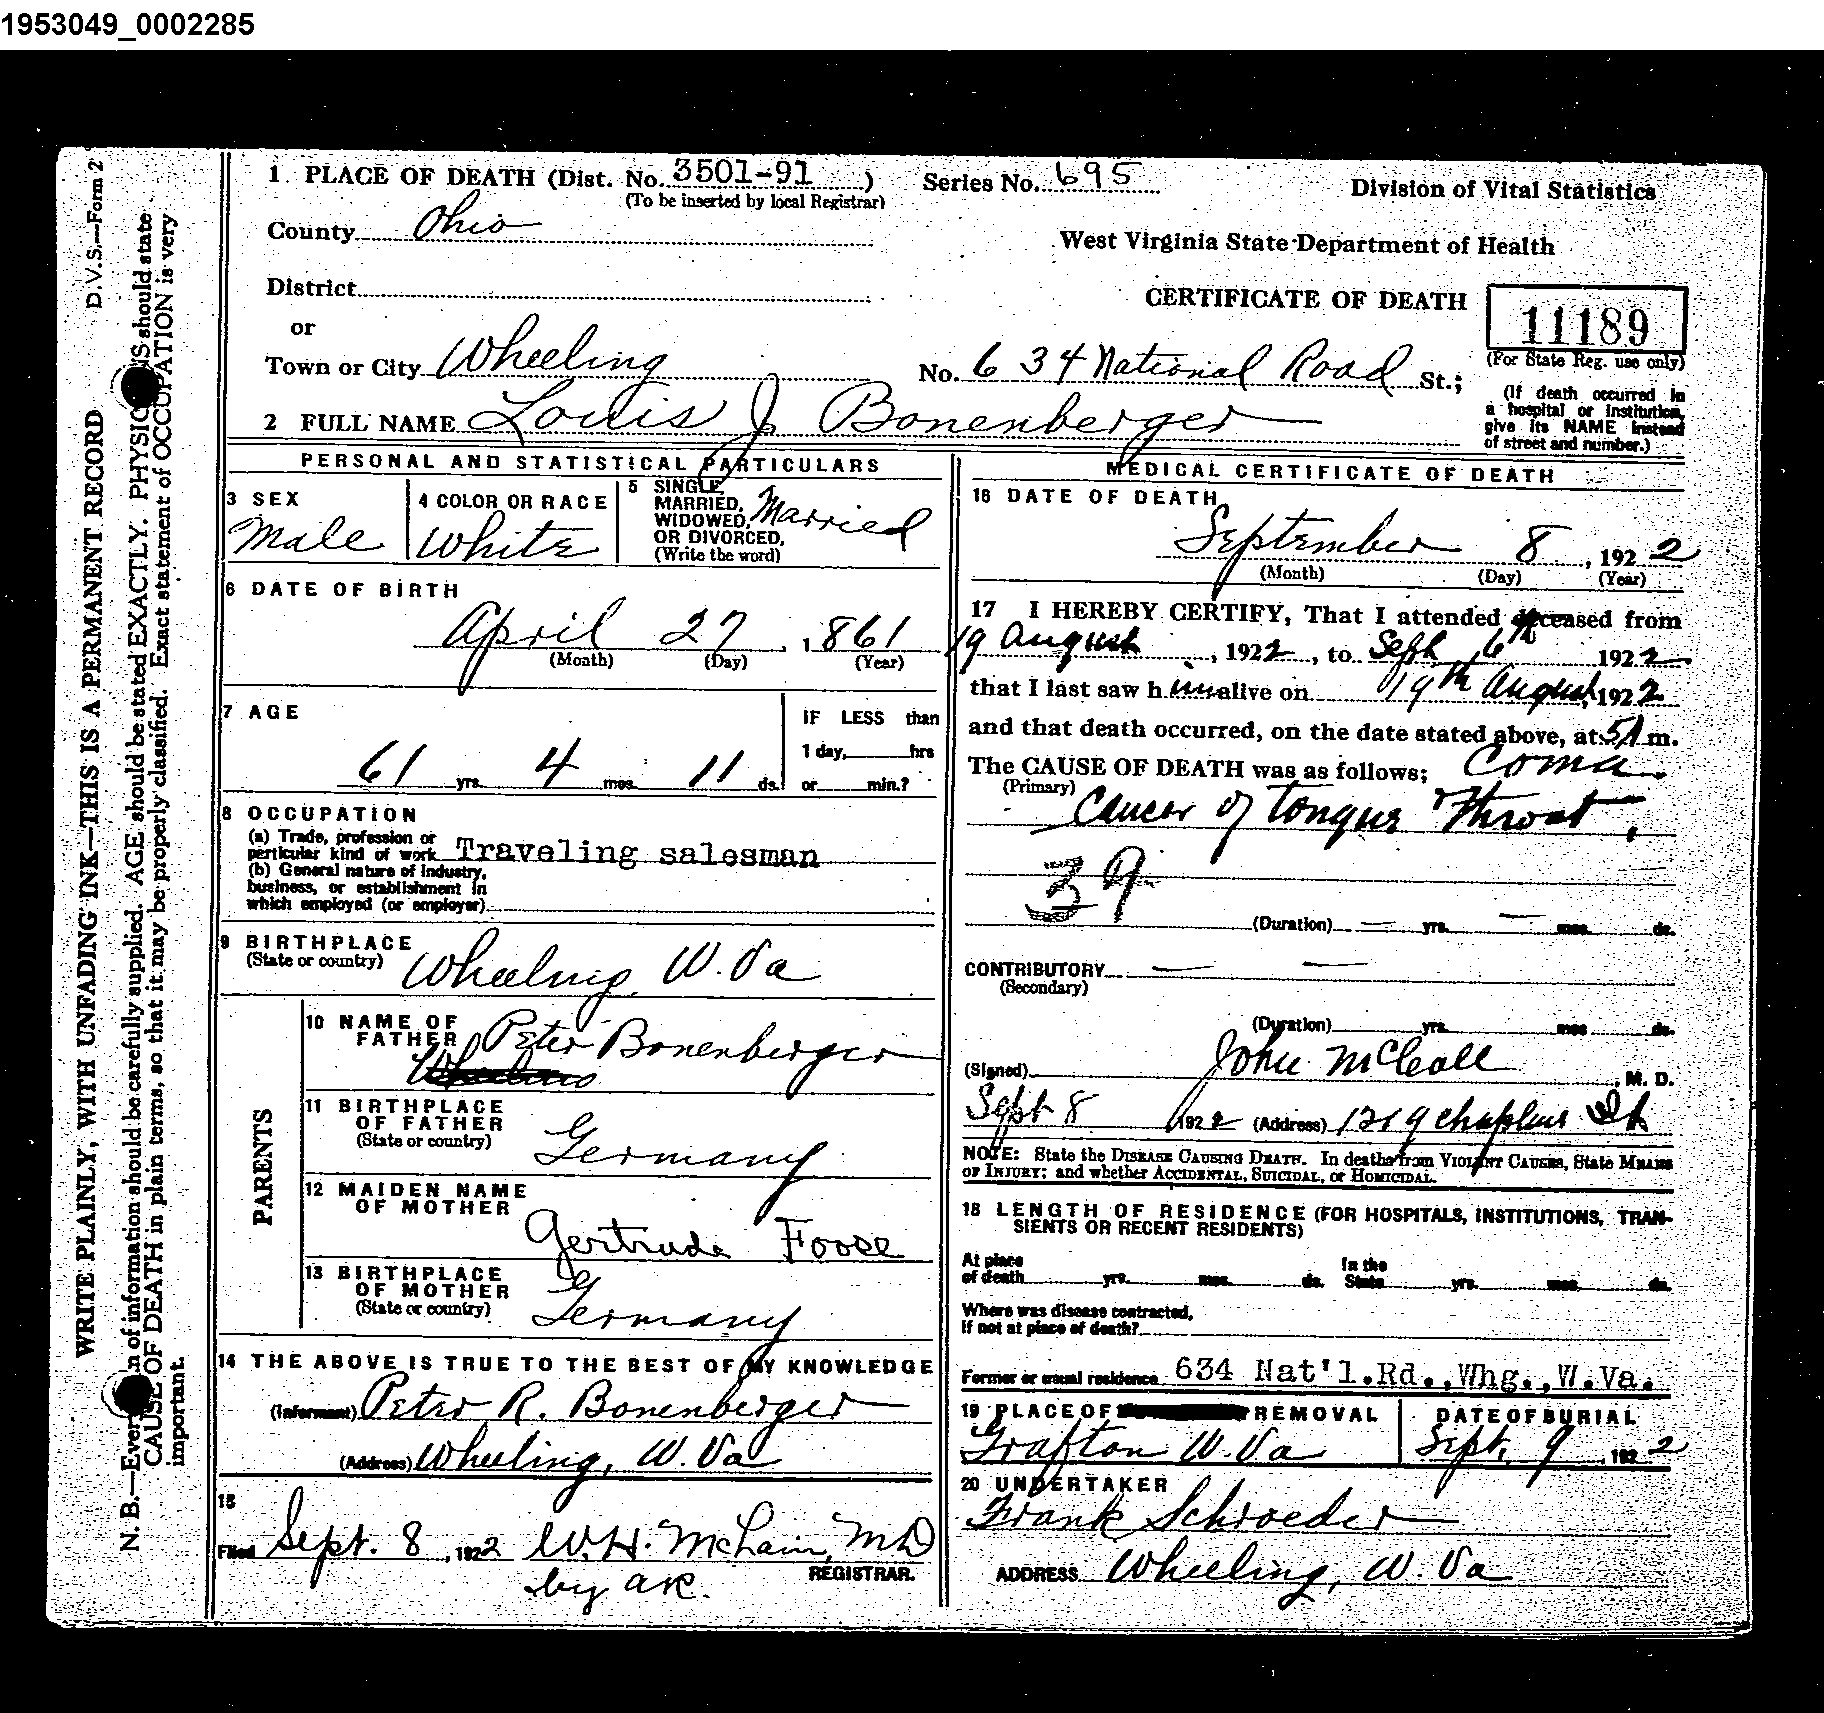 1953049_0002285
D.V.S.—Form 2
WRITE PLAINLY, WITH UNFADING INK—THIS IS A PERMANENT RECORD
N. B.—Every item of information should be carefully supplied. AGE should be stated EXACTLY. PHYSICIANS should state
CAUSE OF DEATH in plain terms, so that it may be properly classified. Exact statement of OCCUPATION is very
important.
1 PLACE OF DEATH (Dist. No. 3501-91 ) Series No. 695 Division of Vital Statistics
(To be inserted by local Registrar)
County Ohio
West Virginia State Department of Health
District
CERTIFICATE OF DEATH 11189
or
(For State Reg. use only)
Town or City Wheeling No. 634 National Road St.;
(If death occurred in
a hospital or institution,
give its NAME instead
of street and number.)
2 FULL NAME Louis J Bonenberger
PERSONAL AND STATISTICAL PARTICULARS
3 SEX
Male
4 COLOR OR RACE
White
5 SINGLE,
MARRIED,
WIDOWED,
OR DIVORCED,
(Write the word)
Married
6 DATE OF BIRTH
April 27 , 1861
(Month) (Day) (Year)
7 AGE
61 yrs. 4 mos. 11 ds.
IF LESS than
1 day, hrs
or min.?
8 OCCUPATION
(a) Trade, profession or
perticular kind of work Traveling salesman
(b) General nature of industry,
business, or establishment in
which employed (or employer)
9 BIRTHPLACE
(State or country) Wheeling W. Va
PARENTS
10 NAME OF
FATHER Peter Bonenberger
Wheeling
11 BIRTHPLACE
OF FATHER
(State or country) Germany
12 MAIDEN NAME
OF MOTHER
Gertrude Foose
13 BIRTHPLACE
OF MOTHER
(State or country) Germany
14 THE ABOVE IS TRUE TO THE BEST OF MY KNOWLEDGE
(Informant) Peter R. Bonenberger
(Address) Wheeling, W. Va
15
Filed Sept. 8 , 1922 W. H. McLain, MD
by AK. REGISTRAR.
MEDICAL CERTIFICATE OF DEATH
16 DATE OF DEATH
September 8 , 1922
(Month) (Day) (Year)
17 I HEREBY CERTIFY, That I attended deceased from
19 August , 1922 , to Sept 6th 1922
that I last saw him alive on 19th August, 1922
and that death occurred, on the date stated above, at 5A m.
The CAUSE OF DEATH was as follows; Coma.
(Primary)
Cancer of Tongue & Throat,
39
(Duration) — yrs. — mos. ds.
CONTRIBUTORY — —
(Secondary)
(Duration) yrs. mos. ds.
(Signed) John McColl , M. D.
Sept 8 1922 (Address) 1319 Chapline St
NOTE: State the DISEASE CAUSING DEATH. In deaths from VIOLENT CAUSES, State MEANS
OF INJURY; and whether ACCIDENTAL, SUICIDAL, or HOMICIDAL.
18 LENGTH OF RESIDENCE (FOR HOSPITALS, INSTITUTIONS, TRAN-
SIENTS OR RECENT RESIDENTS)
At place In the
of death yrs. mos. ds. State yrs. mos. ds.
Where was disease contracted,
if not at place of death?
Former or usual residence 634 Nat'l.Rd.,Whg.,W.Va.
19 PLACE OF REMOVAL
Grafton W. Va
DATE OF BURIAL
Sept. 9 , 1922
20 UNDERTAKER
Frank Schroeder
ADDRESS Wheeling, W. Va